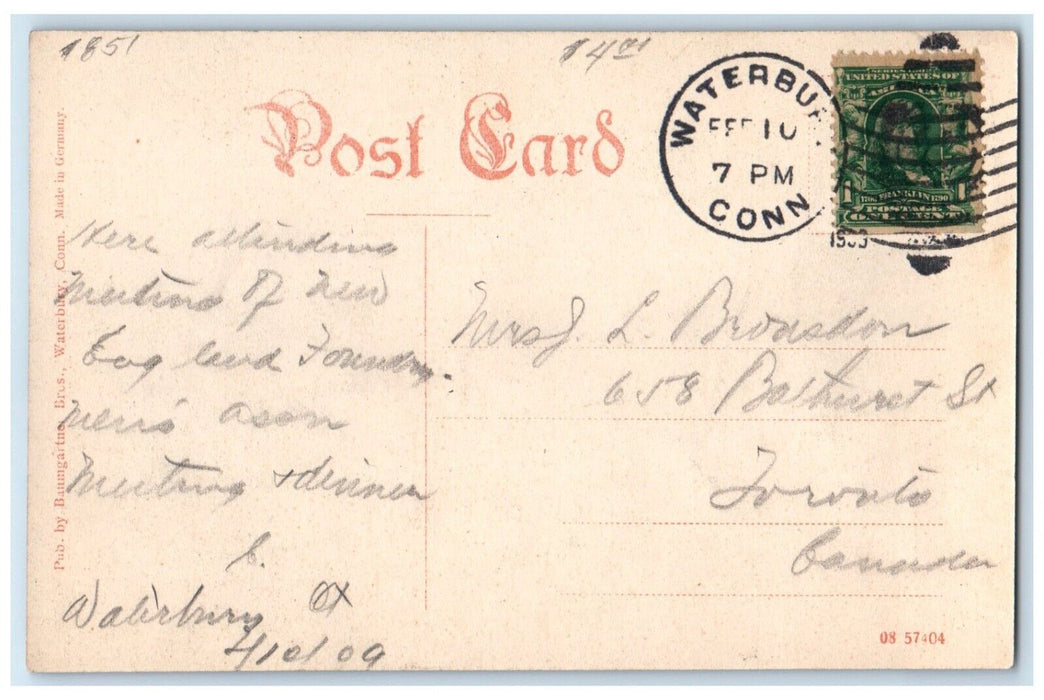 1851
Post Card
WATERBURY
FEB 10
7 PM
CONN
1909
SERIES 1902
UNITED STATES OF
AMERICA
1706 FRANKLIN 1790
1 POSTAGE 1
ONE CENT
Pub. by Baumgartne Bros., Waterbury, Conn. Made in Germany.
Here attending
Meeting of New
England Foundry-
men's assn
Meeting + dinner
C.
Waterbury Ct
2/10/09
Mrs J. L. Broasdon
658 Bathurst St
Toronto
Canada
08 57404